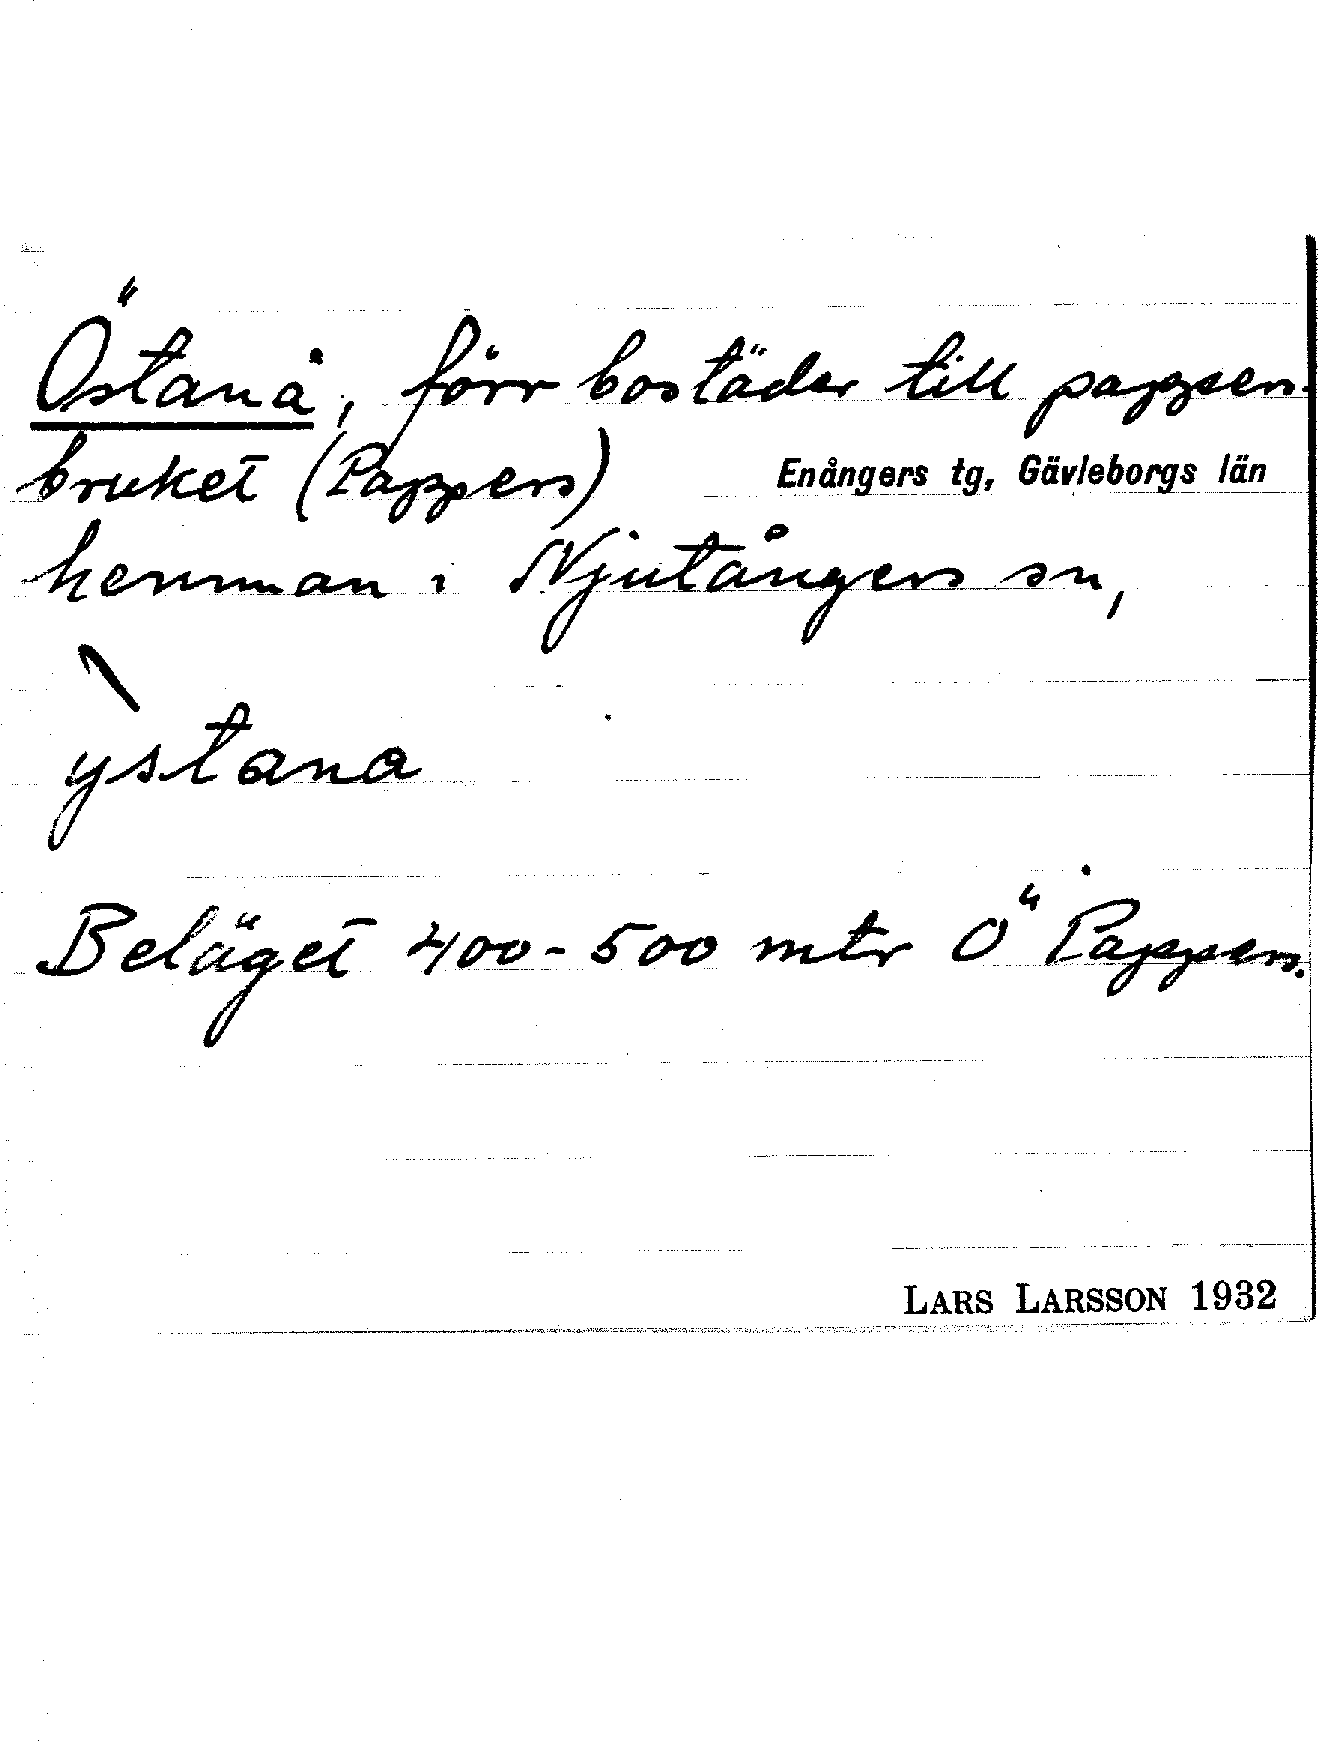 Östanå, förr bostäder till pappers-
bruket (Pappers) Enångers tg, Gävleborgs län
hemman i Njutångers sn,
ystana
Beläget 400-500 mtr Ö Pappers.
LARS LARSSON 1932